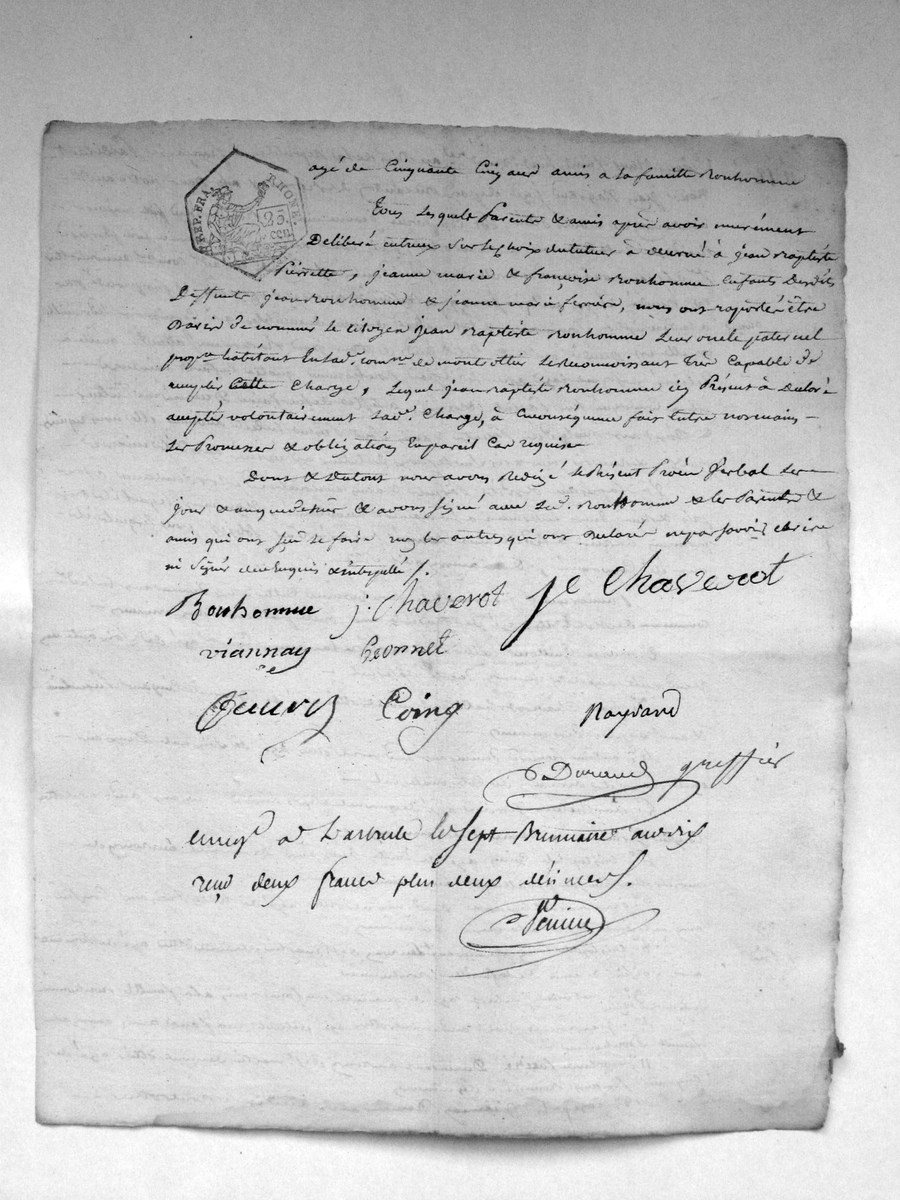 REP. FRA. RHONE.
25.
CEN
agé de Cinquante Cinq ans amis a la famille Bonhomme
Tous Lesquels Parents & amis après avoir murément
Deliberé entreux Sur Le choix du tuteur à donner à jean Baptiste
Pierrette, jeanne marie & françoise Bonhomme Enfants Desdits
Deffunts jean Bonhomme & jeanne marie, nous ont raporté être
D'avis de nommer Le Citoyen jean Baptiste Bonhomme Leur oncle paternel
propre habitant En Lad. comne. de montrottier Le Reconnoissant Très Capable de
remplir Cette Charge, Lequel jean Baptiste Bonhomme icy Présent à Déclaré
accepter volontairement Lade. Charge, à Conséquence fait Entre nos mains
Les Promesses & obligations En pareil Cas requises
Dont & Du tout nous avons Rédigé Le Présent Procès Verbal Les
jour & an que dessus & avons Signé avec Led. Bonhomme & les Parents &
amis qui ont sçu Le faire non les autres qui ont Declaré ne pas Savoir Ecrire
ni Signer de ce Enquis & interpellés /.
Bonhomme j. Chaverot je Chaverot
viannay
Coing Raynard
Durand greffier
enregé. a L'arbresle le Sept Brumaire an dix
reçu deux francs plus deux décimes.